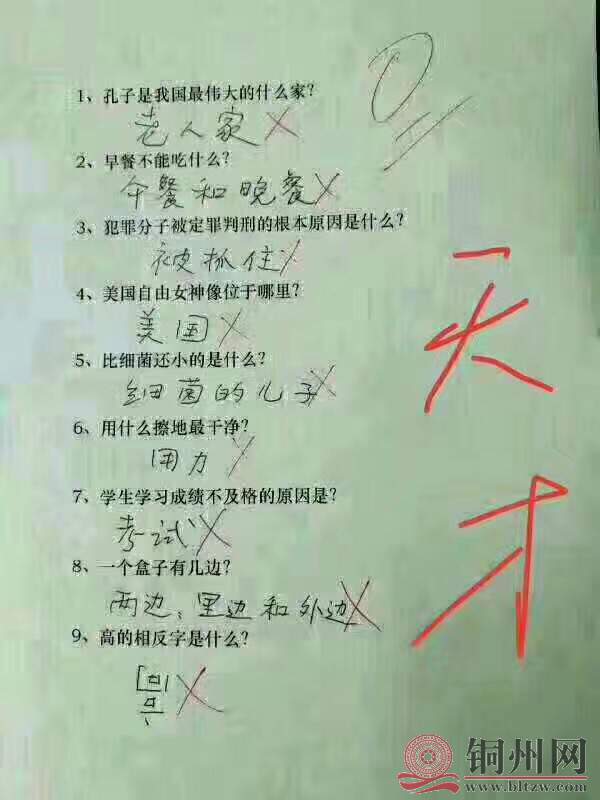 0
1、孔子是我国最伟大的什么家？
老人家
2、早餐不能吃什么？
午餐和晚餐
3、犯罪分子被定罪判刑的根本原因是什么？
被抓住
4、美国自由女神像位于哪里？
美国
5、比细菌还小的是什么？
细菌的儿子
6、用什么擦地最干净？
用力
7、学生学习成绩不及格的原因是？
考试
8、一个盒子有几边？
两边，里边和外边
9、高的相反字是什么？
天才
铜州网
www.bltzw.com